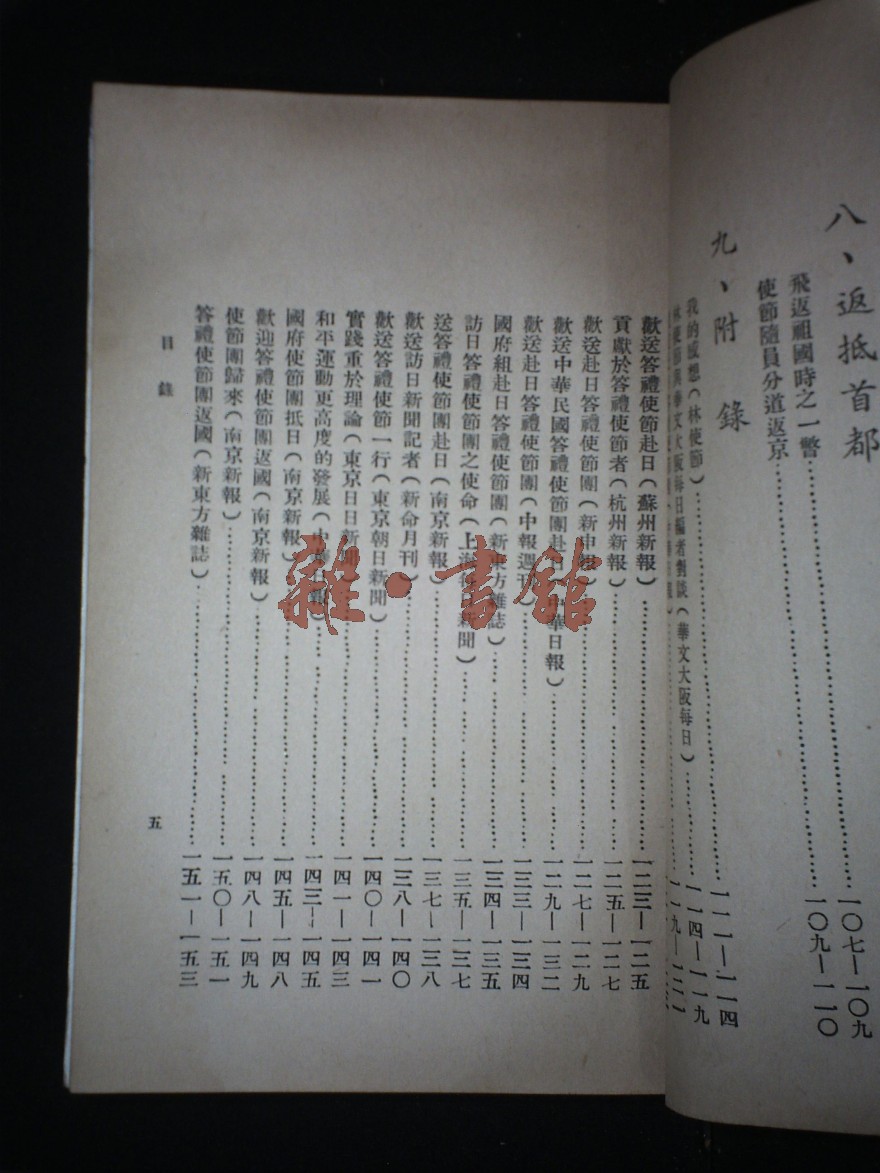 八、返抵首都
飛返祖國時之一瞥……一〇七—一〇九
使節隨員分道返京……一〇九—一一〇
九、附錄
我的感想（林使節）……一一一—一一四
林使節與華文大阪每日編者對談（華文大阪每日）……一一四—一一九
歡送答禮使節赴日（蘇州新報）……一二三—一二五
貢獻於答禮使節者（杭州新報）……一二五—一二七
歡送赴日答禮使節團（新申報）……一二七—一二九
歡送中華民國答禮使節團赴日（中華日報）……一二九—一三二
歡送赴日答禮使節團（中報週刊）……一三三—一三四
國府組赴日答禮使節團（新東方雜誌）……一三四—一三五
訪日答禮使節團之使命（上海每日新聞）……一三五—一三七
送答禮使節團赴日（南京新報）……一三七—一三八
歡送訪日新聞記者（新命月刊）……一三八—一四〇
歡送答禮使節一行（東京朝日新聞）……一四〇—一四一
實踐重於理論（東京日日新聞）……一四一—一四三
和平運動更高度的發展（中華日報）……一四三—一四五
國府使節團抵日（南京新報）……一四五—一四八
歡迎答禮使節團返國（南京新報）……一四八—一四九
使節團歸來（南京新報）……一五〇—一五一
答禮使節團返國（新東方雜誌）……一五一—一五三
目錄
五
雜·書館